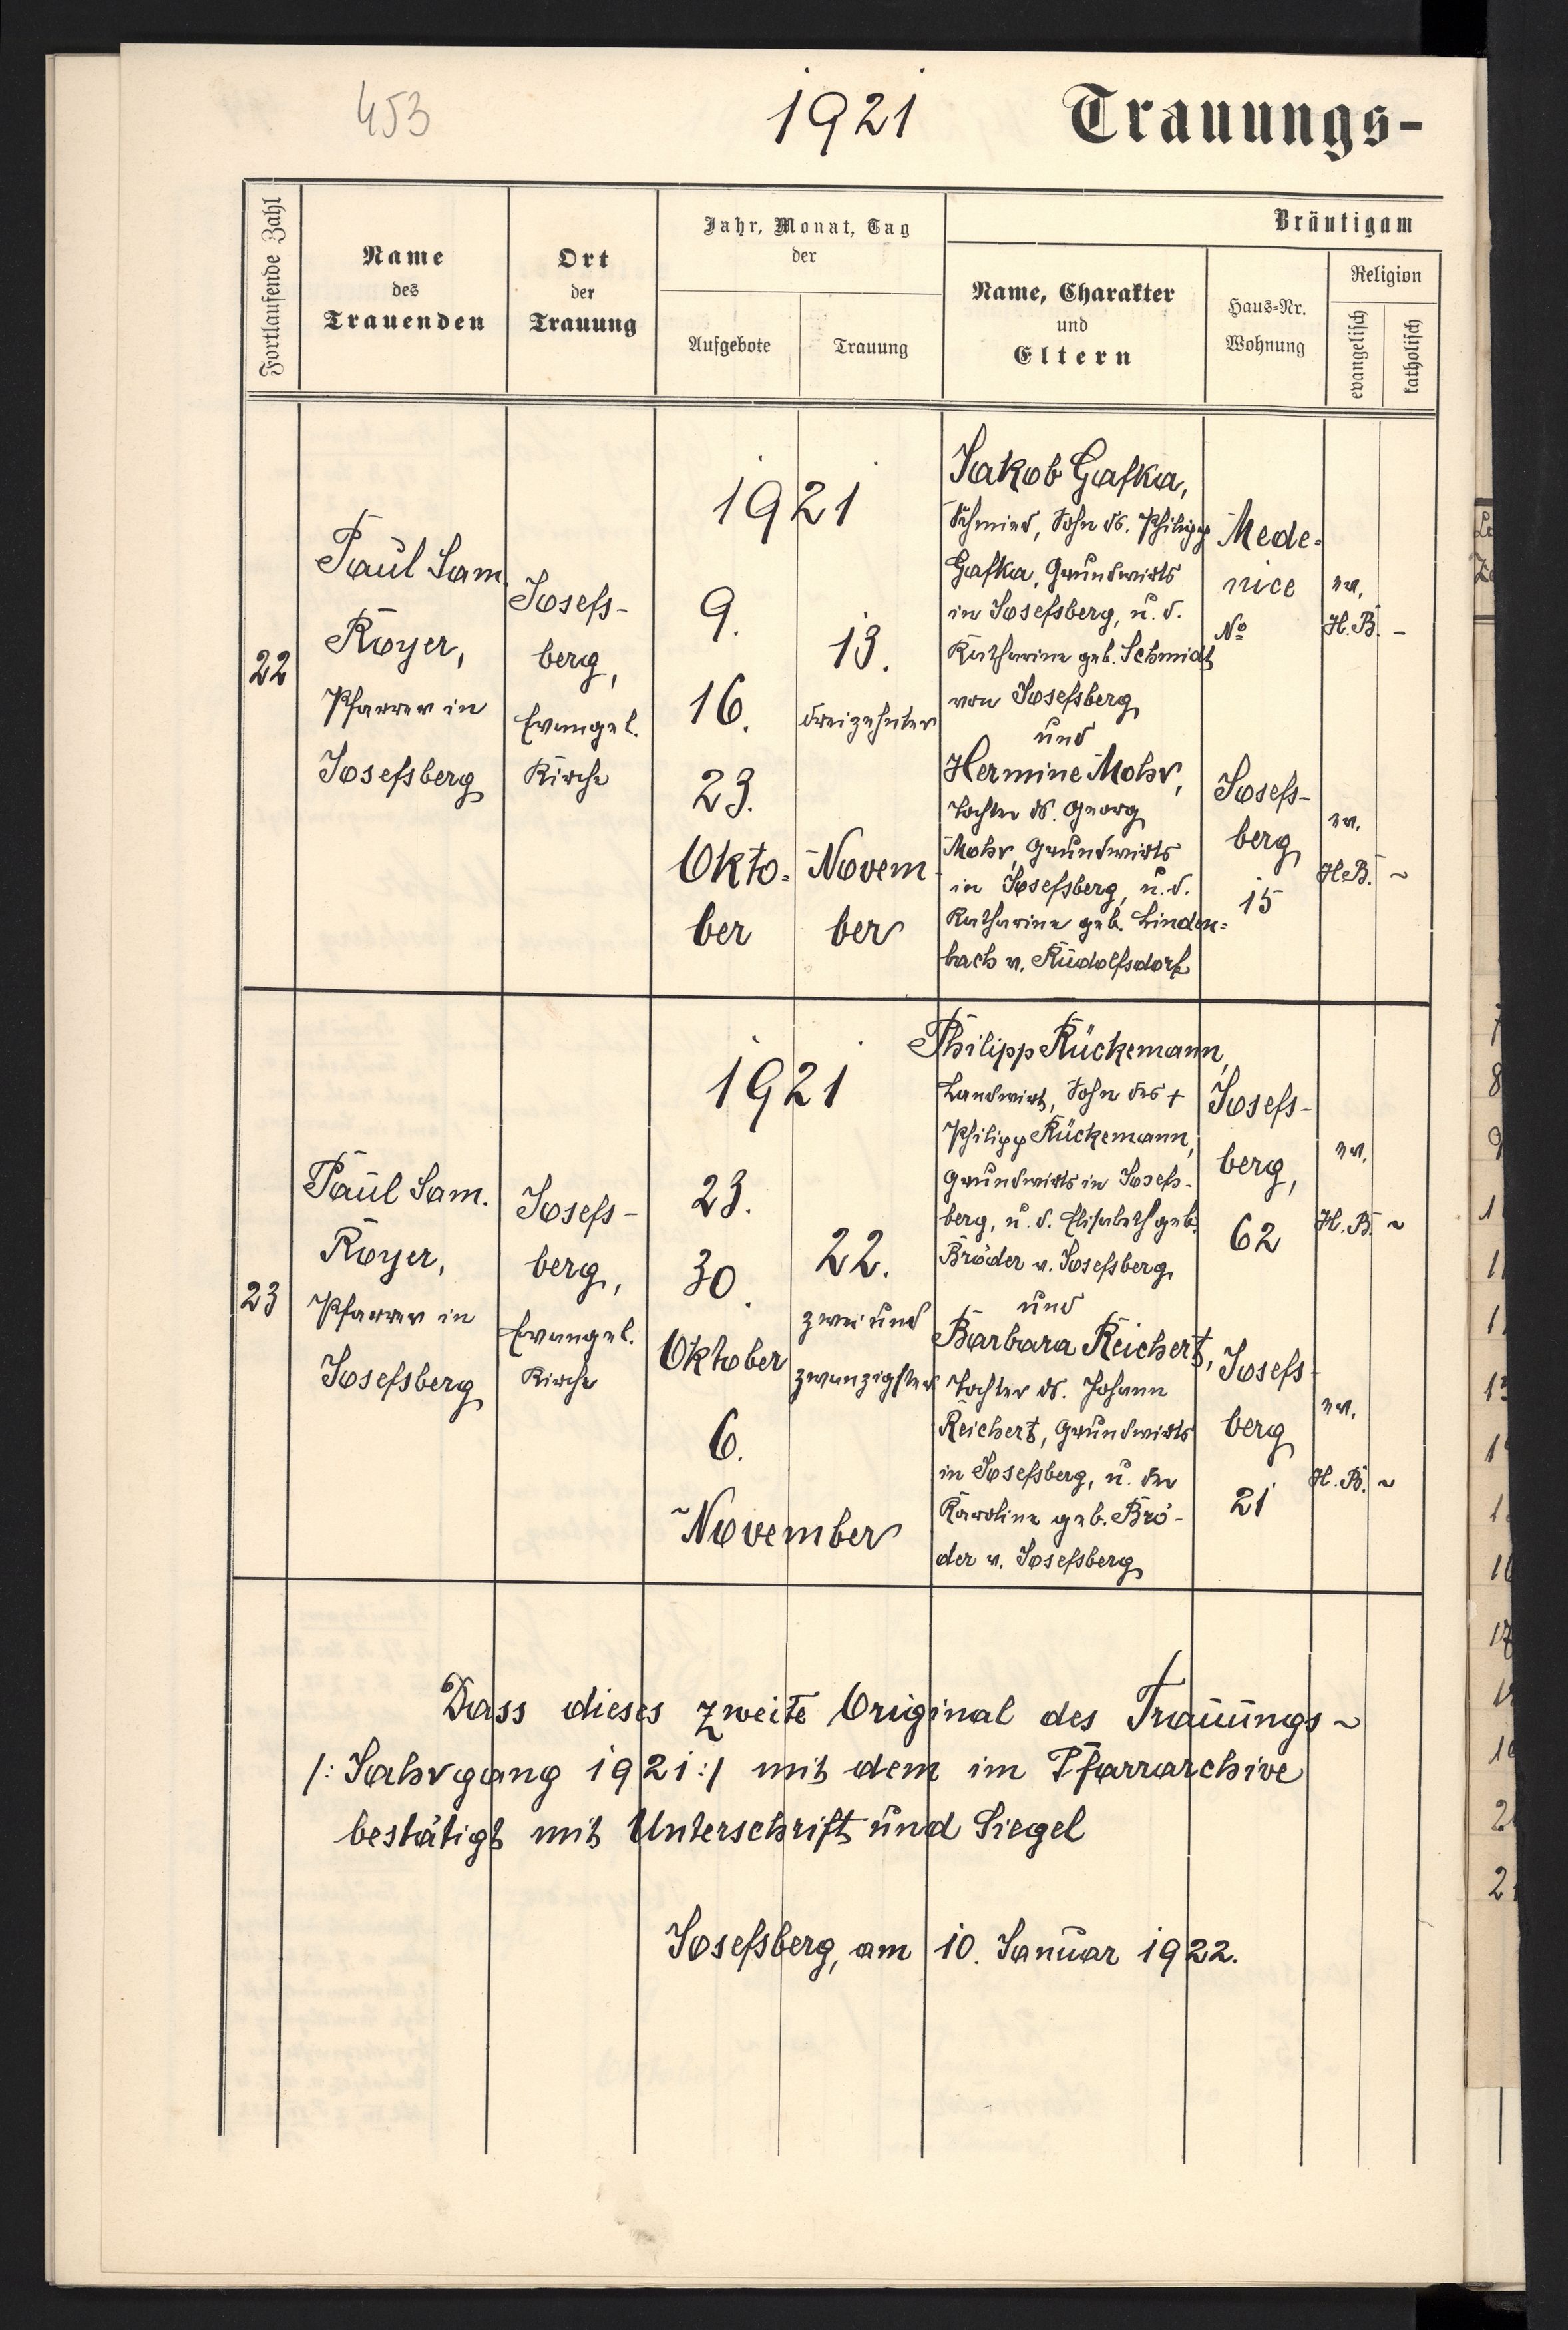 453
1921
Trauungs-
Fortlaufende Zahl
Name
des
Trauenden
Ort
der
Trauung
Jahr, Monat, Tag
der
Aufgebote
Trauung
Bräutigam
Name, Charakter
und
Eltern
Haus-Nr.
Wohnung
Religion
evangelisch
katholisch
22
Paul Sam.
Royer,
Pfarrer in
Josefsberg
Josefs-
berg,
Evangel.
Kirche
1921
9.
16.
23.
Okto-
ber
13.
dreizehnter
Novem-
ber
Jakob Gafka,
Schmied, Sohn ds. Philipp
Gafka, Grundwirts
in Josefsberg, u. d.
Katharine geb. Schmidt
von Josefsberg
und
Hermine Mohr,
Tochter ds. Georg
Mohr, Grundwirts
in Josefsberg, u. d.
Katharine geb. Linden=
bach v. Rudolfsdorf
Mede=
nice
No
ev.
H. B. -
Josefs-
berg
15
ev.
H.B. ~
23
Paul Sam.
Royer,
Pfarrer in
Josefsberg
Josefs-
berg,
Evangel.
Kirche
1921
23.
30.
Oktober
6.
November
22.
zweiund
zwanzigster
Philipp Rückemann,
Landwirt, Sohn des +
Philipp Rückemann,
Grundwirts in Josefs-
berg, u. d. Elisabeth geb.
Bröder v. Josefsberg
und
Barbara Reichert,
Tochter ds. Johann
Reichert, Grundwirts
in Josefsberg, u. der
Karoline geb. Brö-
der v. Josefsberg
Josefs-
berg,
62
ev.
H. B. ~
Josefs-
berg
21
ev.
H. B. ~
Dass dieses zweite Original des Trauungs~
/: Jahrgang 1921 :/ mit dem im Pfarrarchive
bestätigt mit Unterschrift und Siegel
Josefsberg, am 10. Januar 1922.